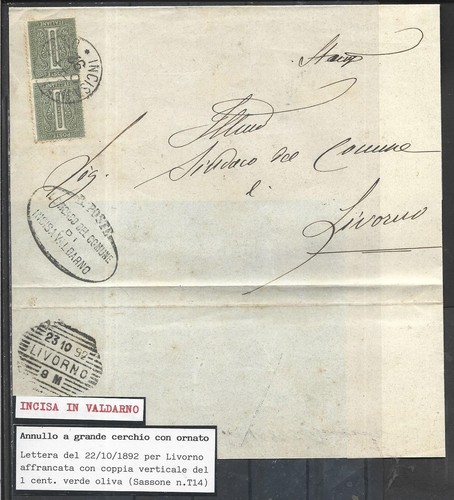 INCISA
Stampe
Illmo
Sindaco del Comune
di
Livorno
R. POSTE
SINDACO DEL COMUNE
DI
INCISA VALDARNO
23 10 92
LIVORNO
8 M
INCISA IN VALDARNO
Annullo a grande cerchio con ornato
Lettera del 22/10/1892 per Livorno
affrancata con coppia verticale del
1 cent. verde oliva (Sassone n.T14)